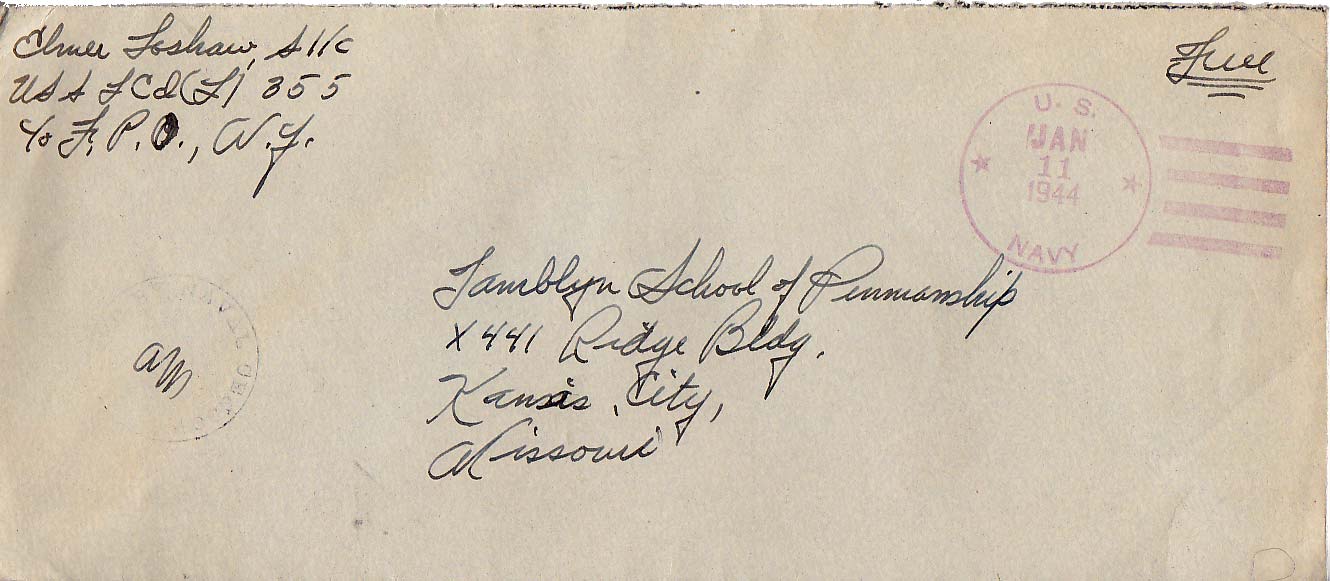 Elmer Loshaw, S 1/c
USS LCI(L) 355
c/o F.P.O., N.Y.
Free
U. S.
JAN
11
1944
NAVY
Tamblyn School of Penmanship
X441 Ridge Bldg.
Kansas, City,
Missouri
NAVAL